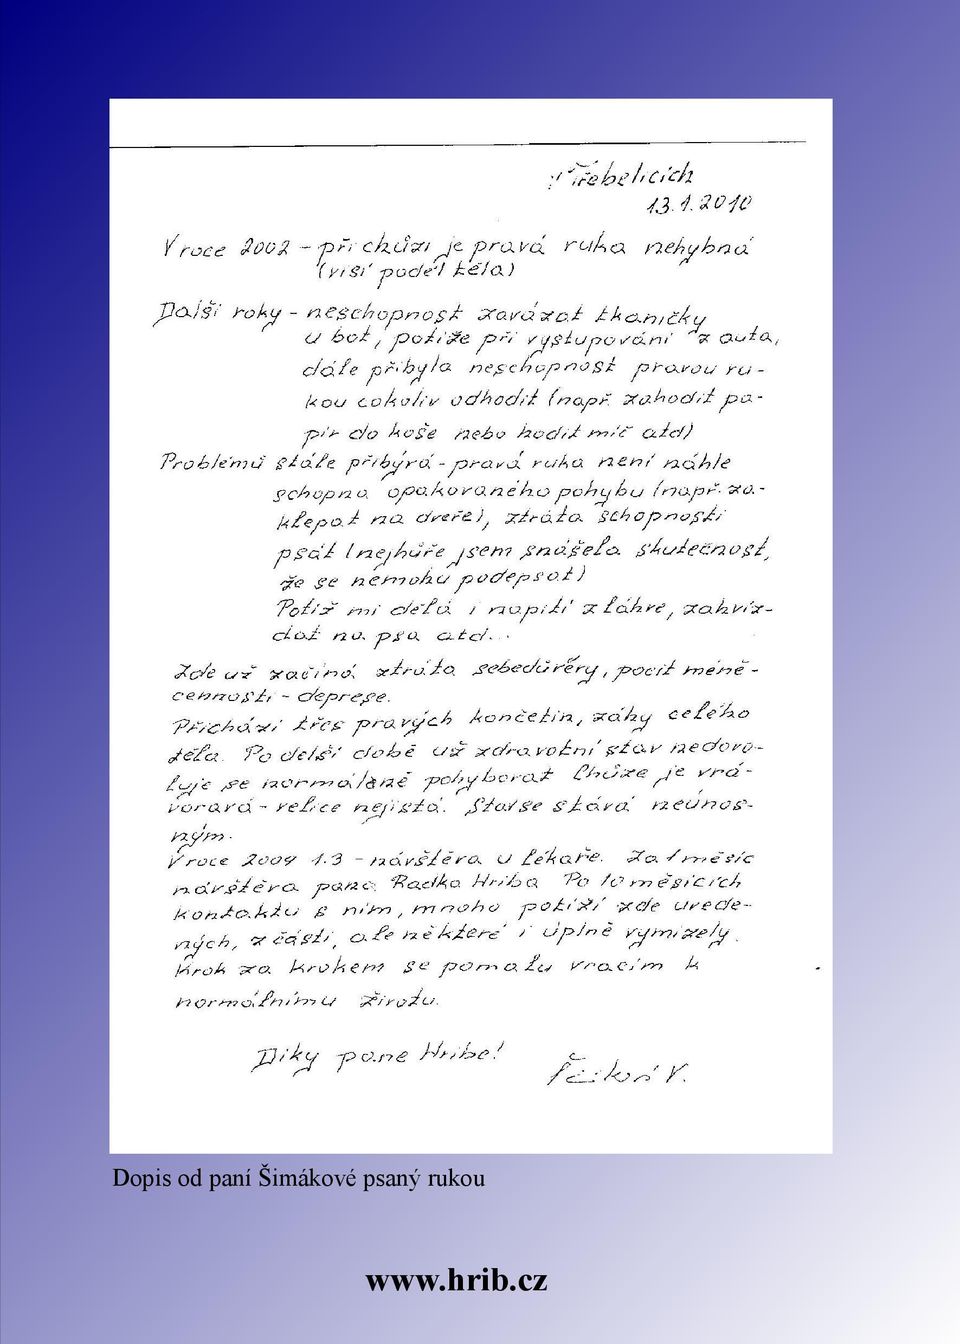 v Třebelicích
13.1.2010
V roce 2002 - při chůzi je pravá ruka nehybná
(visí podél těla)
Další roky - neschopnost zavázat tkaničky
u bot, potiže při vystupování z auta,
dále přibyla neschopnost pravou ru-
kou cokoliv odhodit (např. zahodit pa-
pír do koše nebo hodit míč atd)
Problémů stále přibývá - pravá ruka není náhle
schopna opakovaného pohybu (např. za-
klepat na dveře), ztráta schopnosti
psát (nejhůře jsem snášela skutečnost,
že se nemohu podepsat)
Potíž mi dělá i napití z láhve, zahvíz-
dat na psa atd...
Zde už začíná ztráta sebedůvěry, pocit méně-
cennosti - deprese.
Přichází třes pravých končetin, záhy celého
těla. Po delší době už zdravotní stav nedovo-
luje se normálně pohybovat Chůze je vrá-
voravá - velice nejistá. Stav se stává neúnos-
ným.
V roce 2009 1.3 - návštěva u lékaře. Za 1 měsíc
návštěva pana Radka Hriba Po 10 měsících
kontaktu s ním, mnoho potíží zde uvede-
ných, z části, ale některé i úplně vymizely.
Krok za krokem se pomalu vracím k
normálnímu životu.
Díky pane Hribe!
V.
Dopis od paní Šimákové psaný rukou
www.hrib.cz